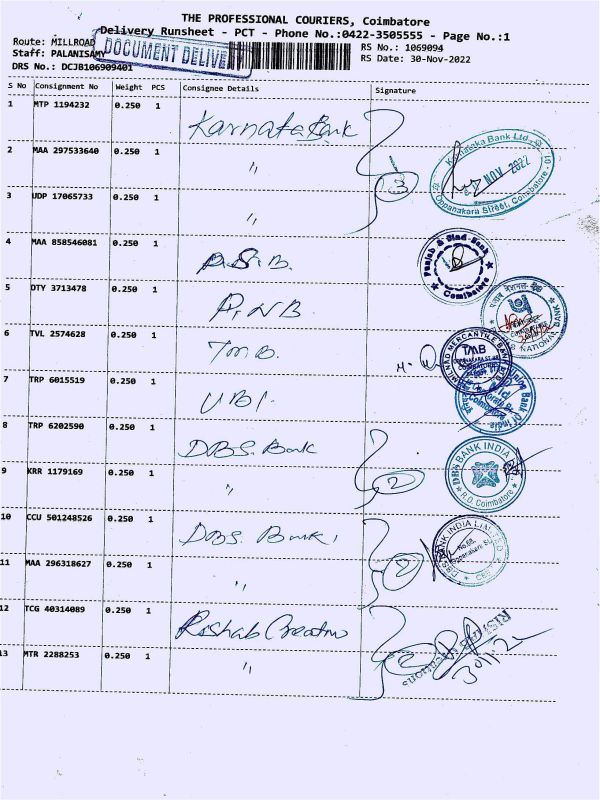 THE PROFESSIONAL COURIERS, Coimbatore
Delivery Runsheet - PCT - Phone No.:0422-3505555 - Page No.:1
Route: MILLROAD
RS No.: 1069094
Staff: PALANISAMY
RS Date: 30-Nov-2022
DRS No.: DCJB106909401
DOCUMENT DELIVE
S No Consignment No Weight PCS Consignee Details Signature
1 MTP 1194232 0.250 1 Karnataka Bank
2 MAA 297533640 0.250 1 "
3 UDP 17065733 0.250 1 "
3
Karnataka Bank Ltd.
NOV 2022
Oppanakara Street, Coimbatore - 01
4 MAA 858546081 0.250 1 P.S.B.
Punjab & Sind Bank
Coimbatore
5 DTY 3713478 0.250 1 P.N.B
NATIONAL BANK
6 TVL 2574628 0.250 1 TMB.
TAMILNAD MERCANTILE BANK LTD
TMB
7 TRP 6015519 0.250 1 UBI.
8 TRP 6202590 0.250 1 DBS. Bank
9 KRR 1179169 0.250 1 "
2
DBS BANK INDIA
R.O. Coimbatore
10 CCU 501248526 0.250 1 DBS. Bank
11 MAA 296318627 0.250 1 "
2
DBS BANK INDIA LIMITED
No.68,
Oppanakara St.
CBE
12 TCG 40314089 0.250 1 Rishab Creation
13 MTR 2288253 0.250 1 "
2